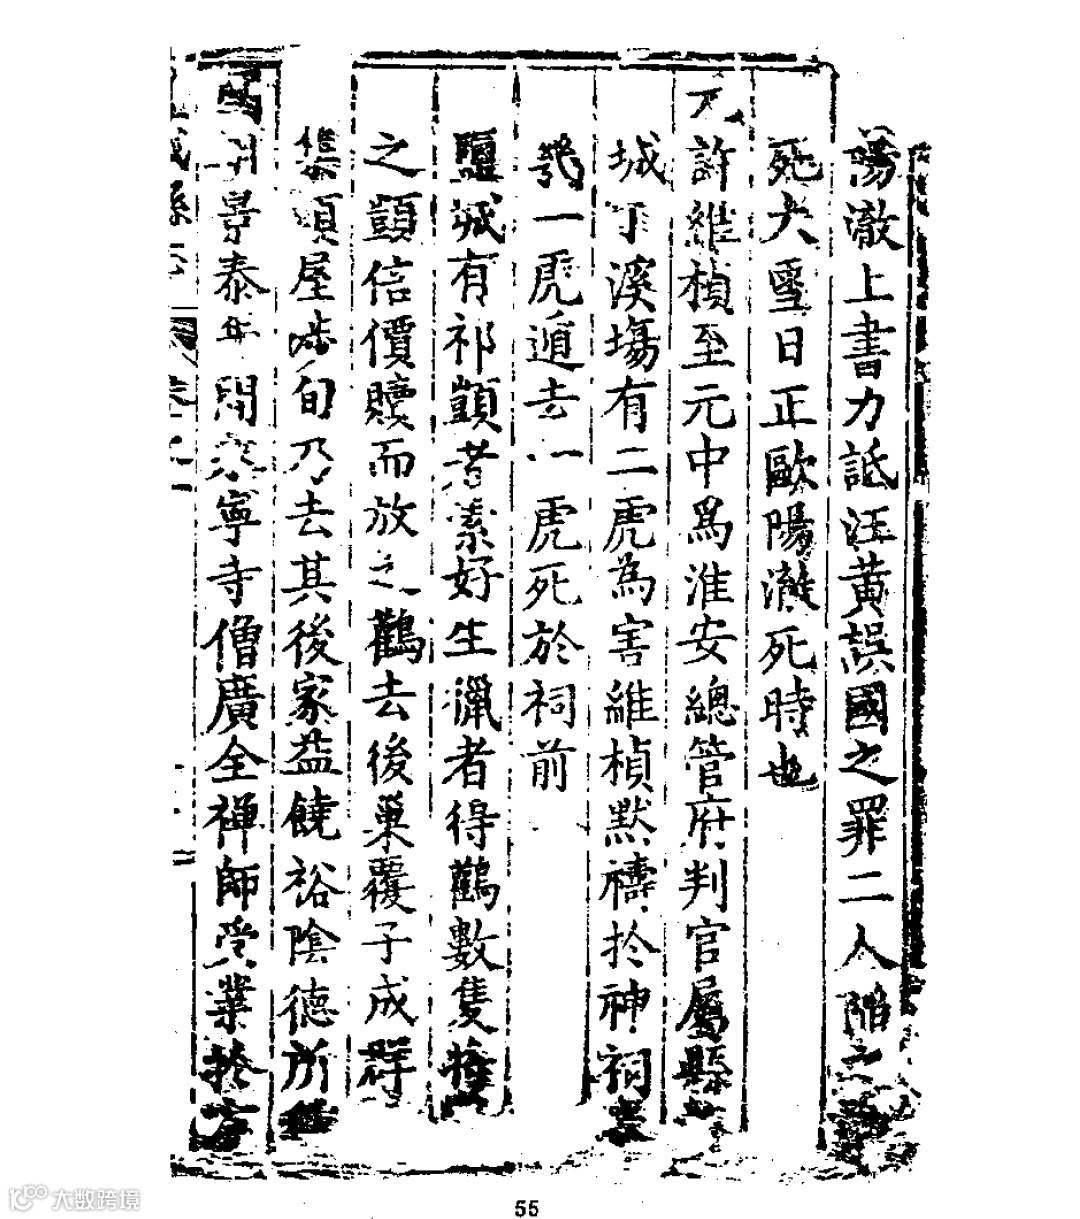 陽澈上書力詆汪黃誤國之罪二人陷之
死大雪日正歐陽澈死時也
元許維楨至元中為淮安總管府判官屬縣
城丁溪塲有二虎為害維楨默禱於神祠
一虎遁去一虎死於祠前
鹽城有祁顗者素好生獵者得鸛數隻
之顗信價贖而放之鸛去後巢覆子成群
集 屋 旬乃去其後家益饒裕陰德所
國朝景泰年間永寧寺僧廣全禪師受業於方
55
大数跨境